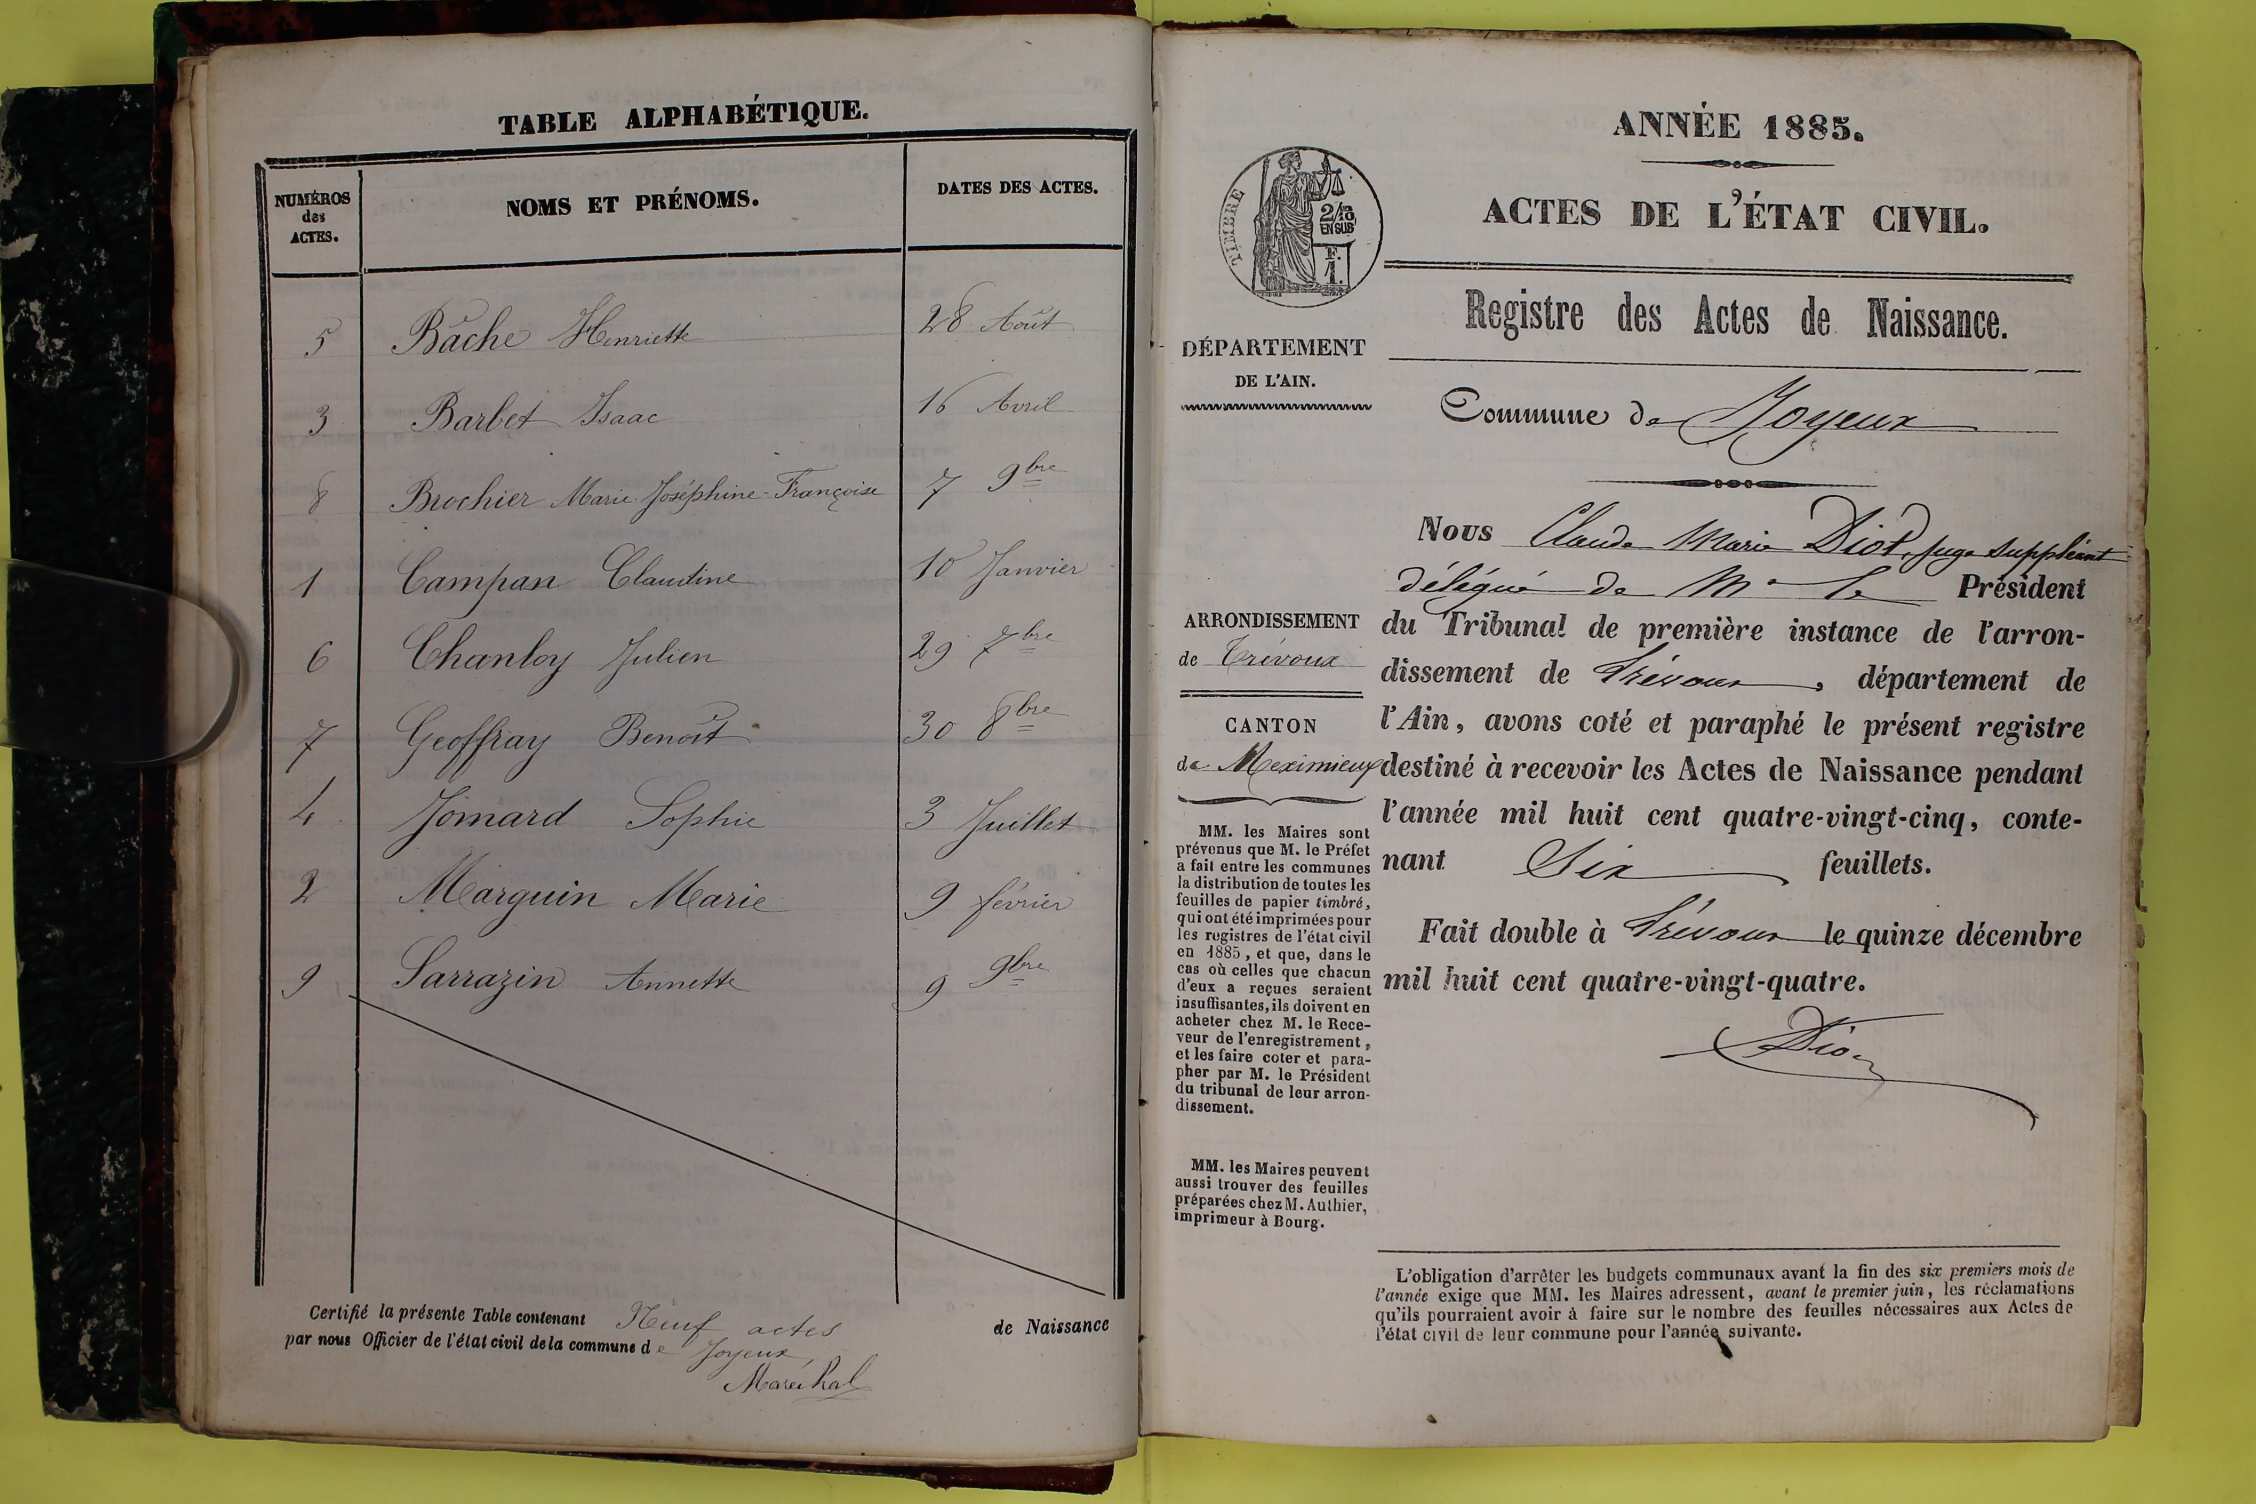 TABLE ALPHABÉTIQUE.
NUMÉROS
des
ACTES.
NOMS ET PRÉNOMS.
DATES DES ACTES.
5 Bâche Henriette 28 Août
3 Barbet Isaac 16 Avril
8 Brochier Marie Joséphine-Françoise 7 9bre
1 Campan Claudine 10 Janvier
6 Chanloy Julien 29 7bre
7 Geoffray Benoît 30 8bre
4 Jomard Sophie 3 Juillet
2 Marguin Marie 9 février
9 Sarrazin Annette 9 9bre
Certifié la présente Table contenant Neuf actes de Naissance
par nous Officier de l'état civil de la commune de Joyeux,
Maréchal
ANNÉE 1885.
ACTES DE L'ÉTAT CIVIL.
TIMBRE
2/10
EN SUS
F.
1.
Registre des Actes de Naissance.
DÉPARTEMENT
DE L'AIN.
Commune de Joyeux
Nous Claude Marie Diot, juge suppléant
délégué de Mr le Président
du Tribunal de première instance de l'arron-
dissement de Trévoux, département de
l'Ain, avons coté et paraphé le présent registre
destiné à recevoir les Actes de Naissance pendant
l'année mil huit cent quatre-vingt-cinq, conte-
nant Six feuillets.
Fait double à Trévoux le quinze décembre
mil huit cent quatre-vingt-quatre.
Diot
ARRONDISSEMENT
de Trévoux
CANTON
de Meximieux
MM. les Maires sont
prévenus que M. le Préfet
a fait entre les communes
la distribution de toutes les
feuilles de papier timbré,
qui ont été imprimées pour
les registres de l'état civil
en 1885, et que, dans le
cas où celles que chacun
d'eux a reçues seraient
insuffisantes, ils doivent en
acheter chez M. le Rece-
veur de l'enregistrement,
et les faire coter et para-
pher par M. le Président
du tribunal de leur arron-
dissement.
MM. les Maires peuvent
aussi trouver des feuilles
préparées chez M. Authier,
imprimeur à Bourg.
L'obligation d'arrêter les budgets communaux avant la fin des six premiers mois de
l'année exige que MM. les Maires adressent, avant le premier juin, les réclamations
qu'ils pourraient avoir à faire sur le nombre des feuilles nécessaires aux Actes de
l'état civil de leur commune pour l'année suivante.